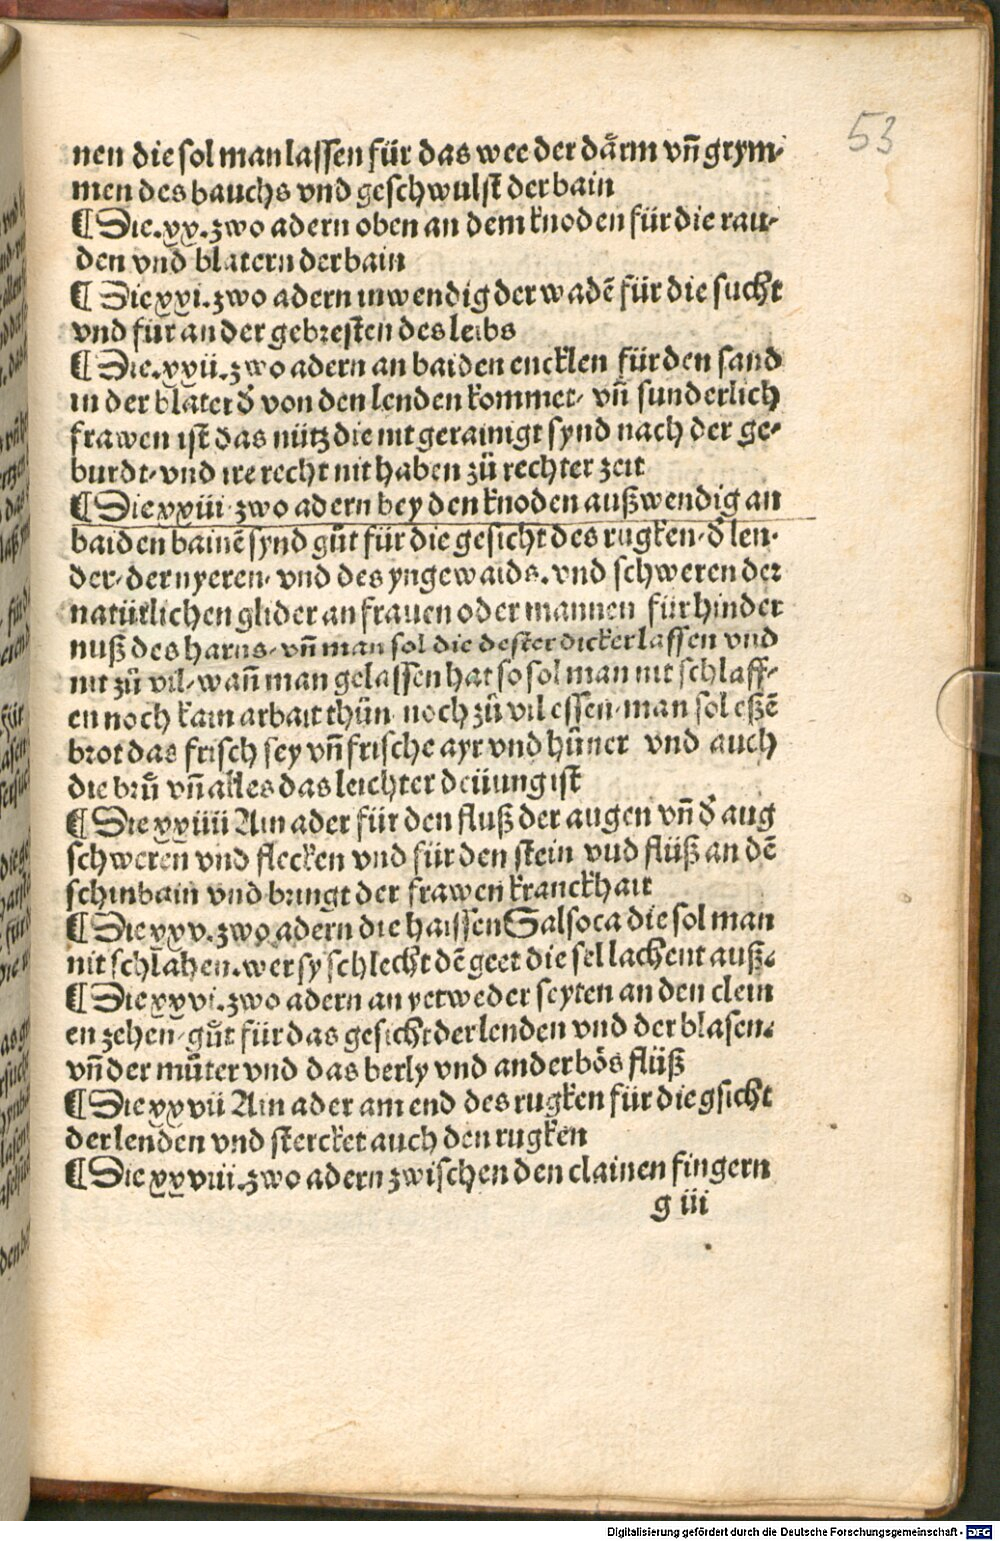 53
nen die sol man lassen für das wee der dårm vñ grym⸗
men des bauchs vnd geschwulst der bain
¶ Die.xx.zwo adern oben an dem knoden für die rau⸗
den vnd blatern der bain
¶ Die xxi.zwo adern inwendig der wadē für die sucht
vnd für ander gebresten des leibs
¶ Die.xxii.zwo adern an baiden encklen für den sand
in der blater d̕ von den lenden kommet⸗ vñ sunderlich
frawen ist das nütz die nit gerainigt synd nach der ge⸗
burdt⸗ vnd ire recht nit haben zü rechter zeit
¶ Die xxiii zwo adern bey den knoden außwendig an
baiden bainē synd gůt für die gesicht des rugken⸗ d̕ len⸗
der⸗ der nyeren⸗ vnd des yngewaids.vnd schweren der
natürlichen glider an frauen oder mannen für hinder
nuß des harns⸗ vñ man sol die dester dicker lassen vnd
nit zů vil⸗ wañ man gelassen hat so sol man nit schlaff⸗
en noch kain arbait thün noch zů vil essen⸗ man sol eßē
brot das frisch sey vñ frische ayr vnd hüner vnd auch
die brů vñ alles das leichter deüung ist
¶ Die xxiiii Ain ader für den fluß der augen vñ d̕ aug
schweren vnd flecken vnd für den stein vud flüß an dē
schinbain vnd bringt der frawen kranckhait
¶ Die xxv.zwo adern die haissen Salsoca die sol man
nit schlahen.wer sy schlecht dē geet die sel lachent auß⸗
¶ Die xxvi.zwo adern an yetweder seyten an den clein
en zehen⸗ gůt für das gesicht der lenden vnd der blasen⸗
vñ der můter vnd das berly vnd ander bös flüß
¶ Die xxvii Ain ader am end des rugken für die gsicht
der lenden vnd stercket auch den rugken
¶ Die xxviii.zwo adern zwischen den clainen fingern
g iii
Digitalisierung gefördert durch die Deutsche Forschungsgemeinschaft - DFG